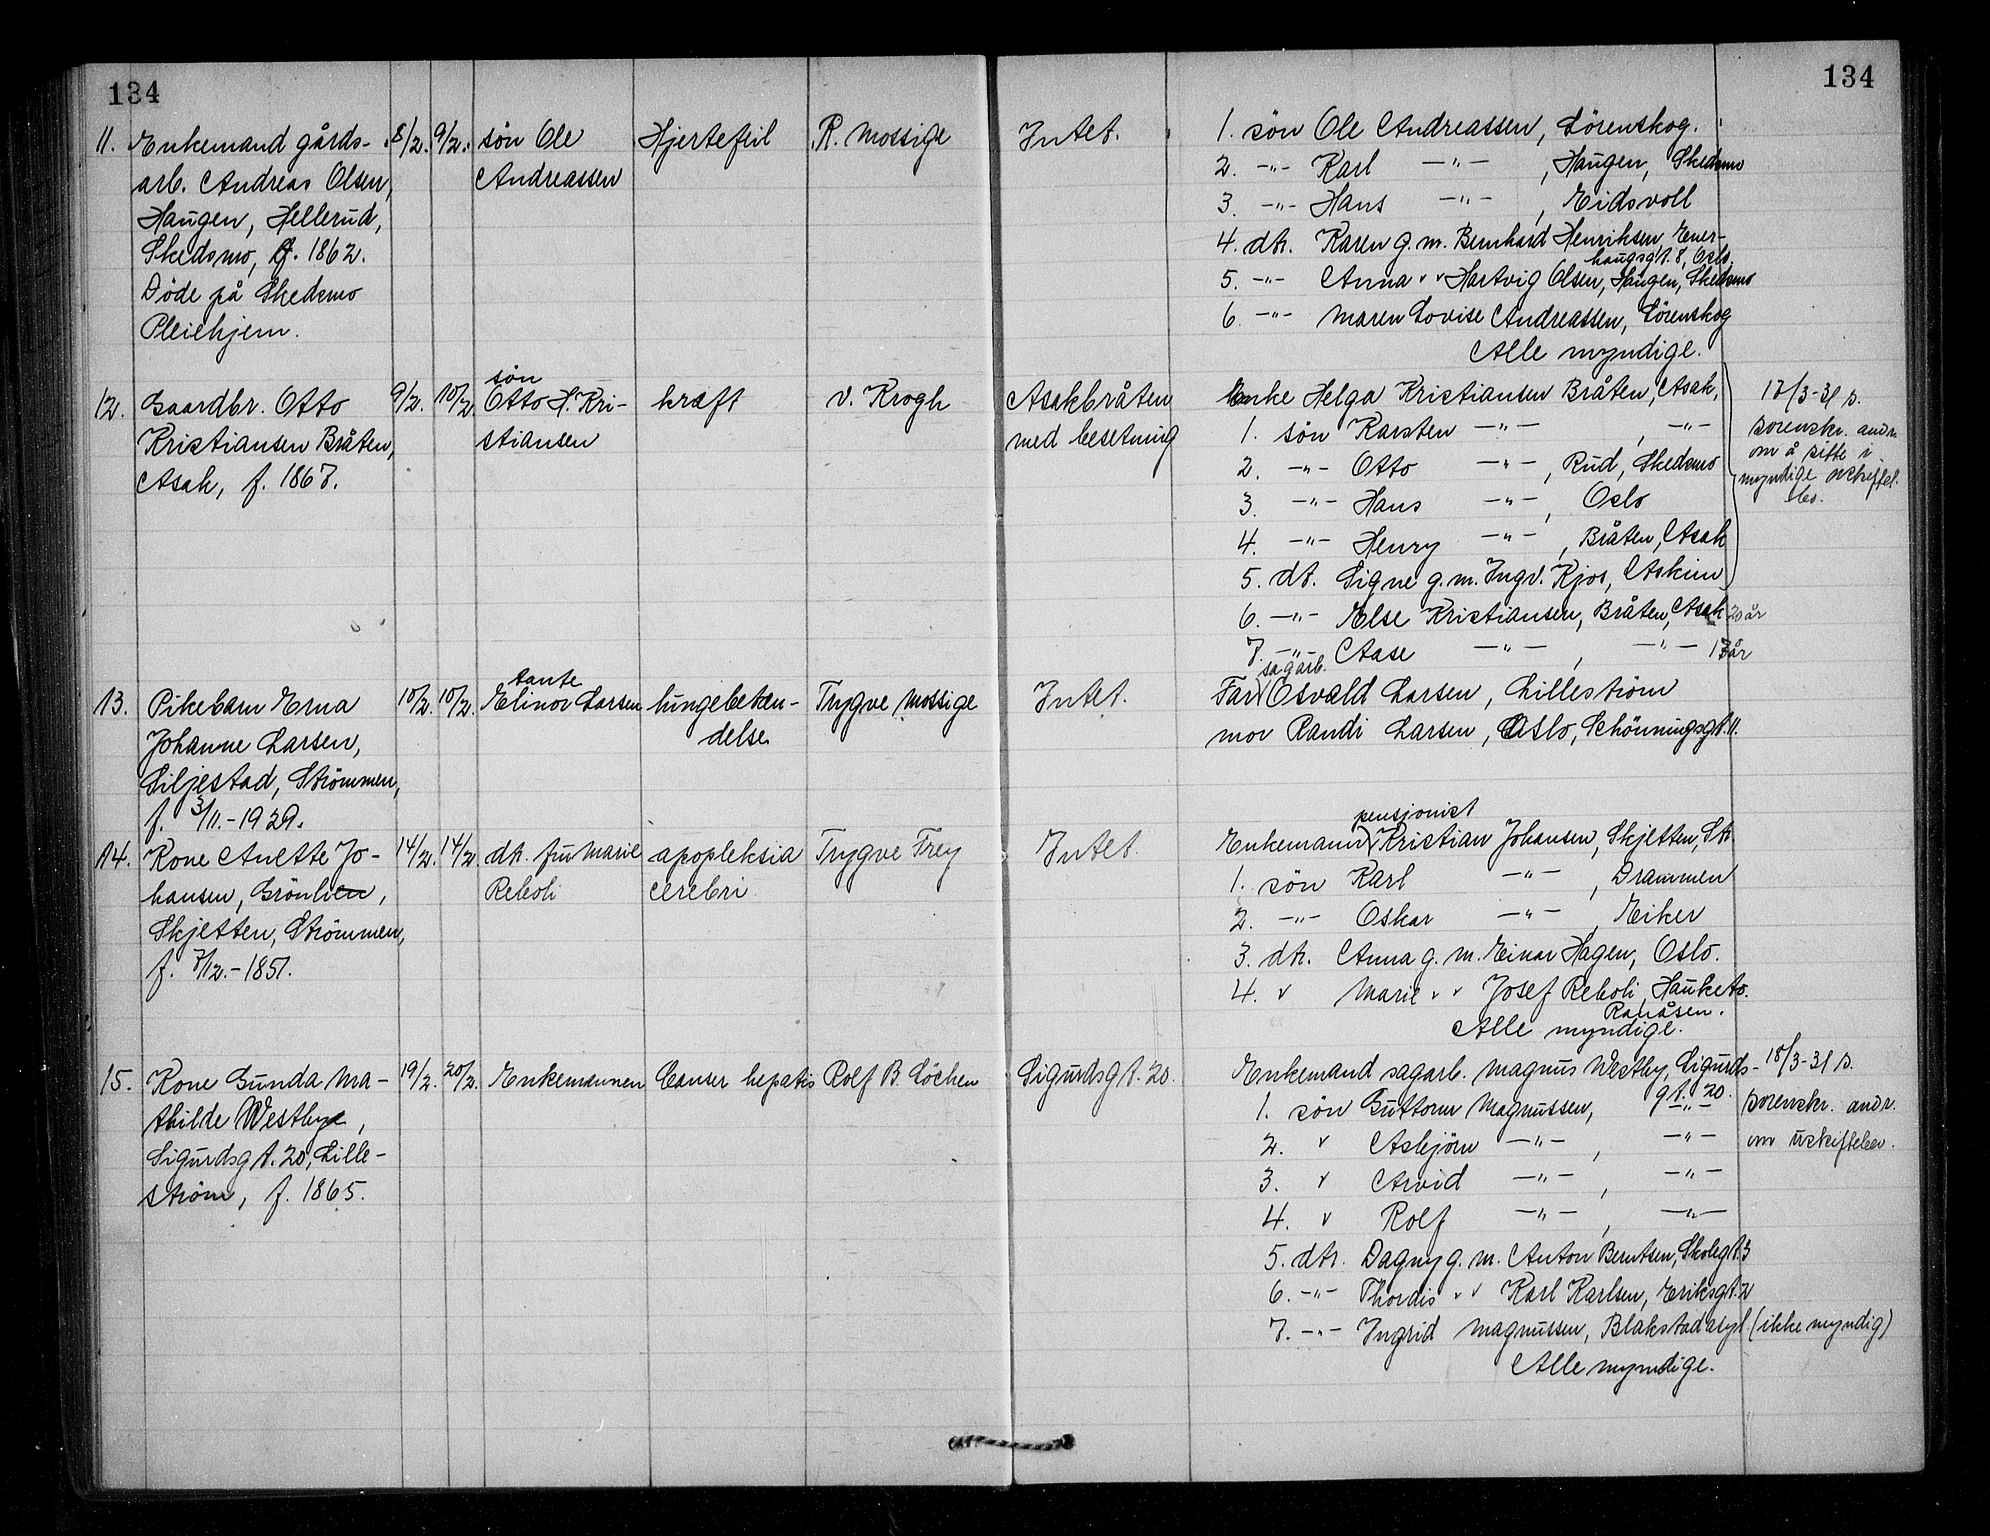 134
134
11. Enkemand gårds- 8/2. 9/2. søn Ole Hjertefeil R. Mossige Intet. 1. søn Ole Andreassen, Lørenskog.
arb. Andreas Olsen, Andreassen 2. -"- Karl -"- , Haugen, Skedsmo
Haugen, Hellerud, 3. -"- Hans -"- , Eidsvoll
Skedsmo, f. 1862. 4. dtr. Karen g. m. Bernhard Henriksen, Ener-
haugsgt. 8, Oslo.
Døde på Skedsmo 5. -"- Anna " " Hartvig Olsen, Haugen, Skedsmo
Pleiehjem. 6. -"- Maren Lovise Andreassen, Lørenskog
Alle myndige.
søn
12. Gaardbr. Otto 9/2. 10/2. Otto H. Kri- kræft v. Krogh Asakbråten Enke Helga Kristiansen Bråten, Asak, 17/3-31 s.
Kristiansen Bråten, stiansen med besetning 1. søn Karsten -"- , -"- sorenskr. andr.
Asak, f. 1867. 2. -"- Otto -"- , Rud, Skedsmo om å sitte i
3. -"- Hans -"- , Oslo myndige uskiftet
bo.
4. -"- Henry -"- , Bråten, Asak
5. dt. Signe g. m. Ingv. Kjos, Askim
6. -"- Else Kristiansen, Bråten, Asak 20 år
7. -"- Aase -"- , -"- 13 år
tante sagarb.
13. Pikebarn Erna 10/2. 10/2. Elinor Larsen lungebeten- Trygve Mossige Intet. Far Osvald Larsen, Lillestrøm
Johanne Larsen, delse mor Randi Larsen, Oslo, Schønningsgt. 11.
Siljestad, Strømmen,
f. 3/11.-1929.
pensjonist
14. Kone Anette Jo- 14/2. 14/2. dtr. fru Marie apopleksia Trygve Frey Intet. Enkemann Kristian Johansen, Skjetten, Str.
hansen, Grønlien, Reboli cerebri 1. søn Karl -"- , Drammen
Skjetten, Strømmen, 2. -"- Oskar -"- , Eiker
f. 7/12.-1851. 3. dtr. Anna g. m. Einar Hagen, Oslo.
4. " Marie " " Josef Reboli, Hauketo.
Alle myndige.
15. Kone Gunda Ma- 19/2. 20/2. Enkemannen Canser hepatis Rolf B. Løchen Sigurdsgt. 20. Enkemand sagarb. Magnus Westby, Sigurds- 18/3-31 s.
gt. 20.
thilde Westby, 1. søn Guttorm Magnussen, -"- sorenskr. andr.
Sigurdsgt. 20, Lille- 2. " Asbjørn -"- , -"- om uskiftebev.
strøm, f. 1865. 3. " Arvid -"- , -"-
4. " Rolf -"- , -"-
5. dtr. Dagny g. m. Anton Berntsen, Skolegt. 3
6. -"- Thordis " " Karl Karlsen, Eriksgt. 2
7. -"- Ingrid Magnussen, Blakstad asyl. (ikke myndig)
Alle myndige.